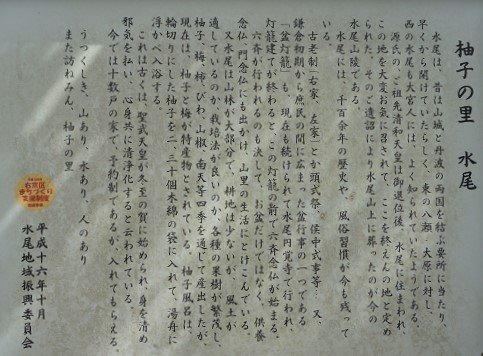 柚子の里 水尾
水尾は、昔は山城と丹波の両国を結ぶ要所に当たり、
早くから開けていたらしく、東の八瀬・大原に対し、
西の水尾も大宮人には、よく知られていたようである。
源氏のご先祖清和天皇は御退位後、水尾に住まわれ、
この地を大変お気に召されて、ここを終えんの地と定め
られた。そのご遺詔により水尾山上に葬ったのが今の
水尾山陵である。
水尾には、千百余年の歴史や、風俗習慣が今も残って
いる。
古老制(右家、左家)とか頭式祭、侯中式事等…又、
鎌倉初期から庶民の間に広まった盆行事の一つである
「盆灯籠」も、現在も続けられて水尾円覚寺で行われ、
灯籠建てが終わると、この灯籠の前で六斉念仏が始まる。
六斉が行われるのも決して、お盆だけではなく、供養
念仏、門念仏にも出かけ、山里の生活にとけこんでいる。
又水尾は山林が大部分で、耕地は少ないが、風土が
適しているのか栽培法が良いのか、各種の果樹が繁茂し、
柚子、梅、柿、びわ、山椒、南天等四季を通じて産出したが、
現在は、柚子と梅が特産物とされている。柚子風呂は、
輪切りにした柚子を二・三十個木綿の袋に入れて、湯舟に
浮かべ入浴する。
これは古くは、聖武天皇が冬至の賀に始められ、身を清め
邪気を払い、心身共に清浄化すると云われている。
今では十数戸の家で、予約制であるが、入れてもらえる。
うつくしき、山あり、水あり、人のあり
また訪ねみん、柚子の里
平成十六年十月
水尾地域振興委員会
右京区
まちづくり
支援制度